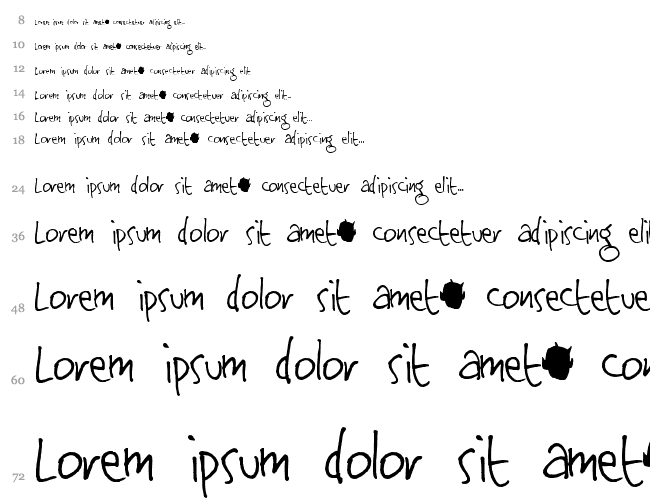 8 Lorem ipsum dolor sit amet consectetuer adipiscing elit...
10 Lorem ipsum dolor sit amet consectetuer adipiscing elit...
12 Lorem ipsum dolor sit amet consectetuer adipiscing elit
14 Lorem ipsum dolor sit amet consectetuer adipiscing elit...
16 Lorem ipsum dolor sit amet consectetuer adipiscing elit...
18 Lorem ipsum dolor sit amet consectetuer adipiscing elit...
24 Lorem ipsum dolor sit amet consectetuer adipiscing elit...
36 Lorem ipsum dolor sit amet consectetuer adipiscing eli
48 Lorem ipsum dolor sit amet consectetue
60 Lorem ipsum dolor sit amet con
72 Lorem ipsum dolor sit amet